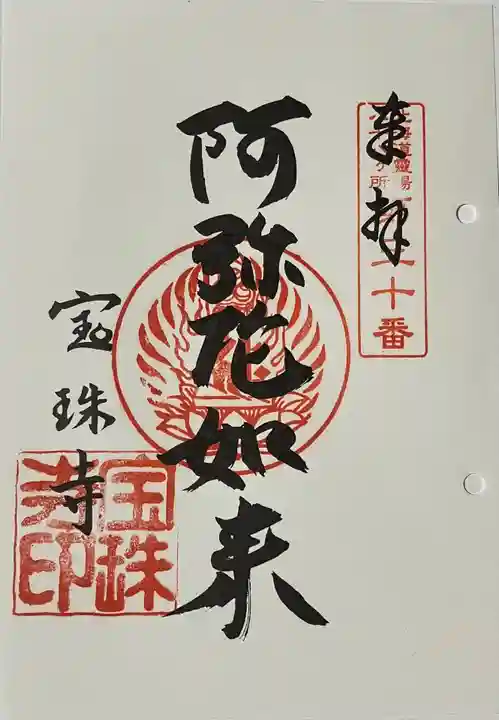 奉拝
北海道霊場
十番
阿弥陀如来
宝珠寺
宝珠
寺印